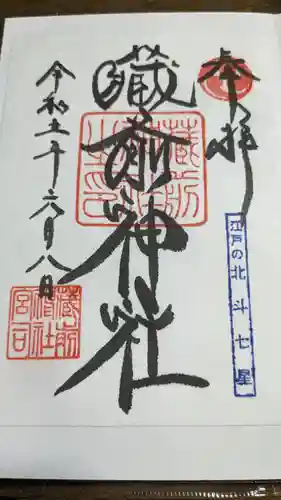 奉拝
江戸の北斗七星
蔵前神社
令和五年六月八日
蔵前
神社
宮司